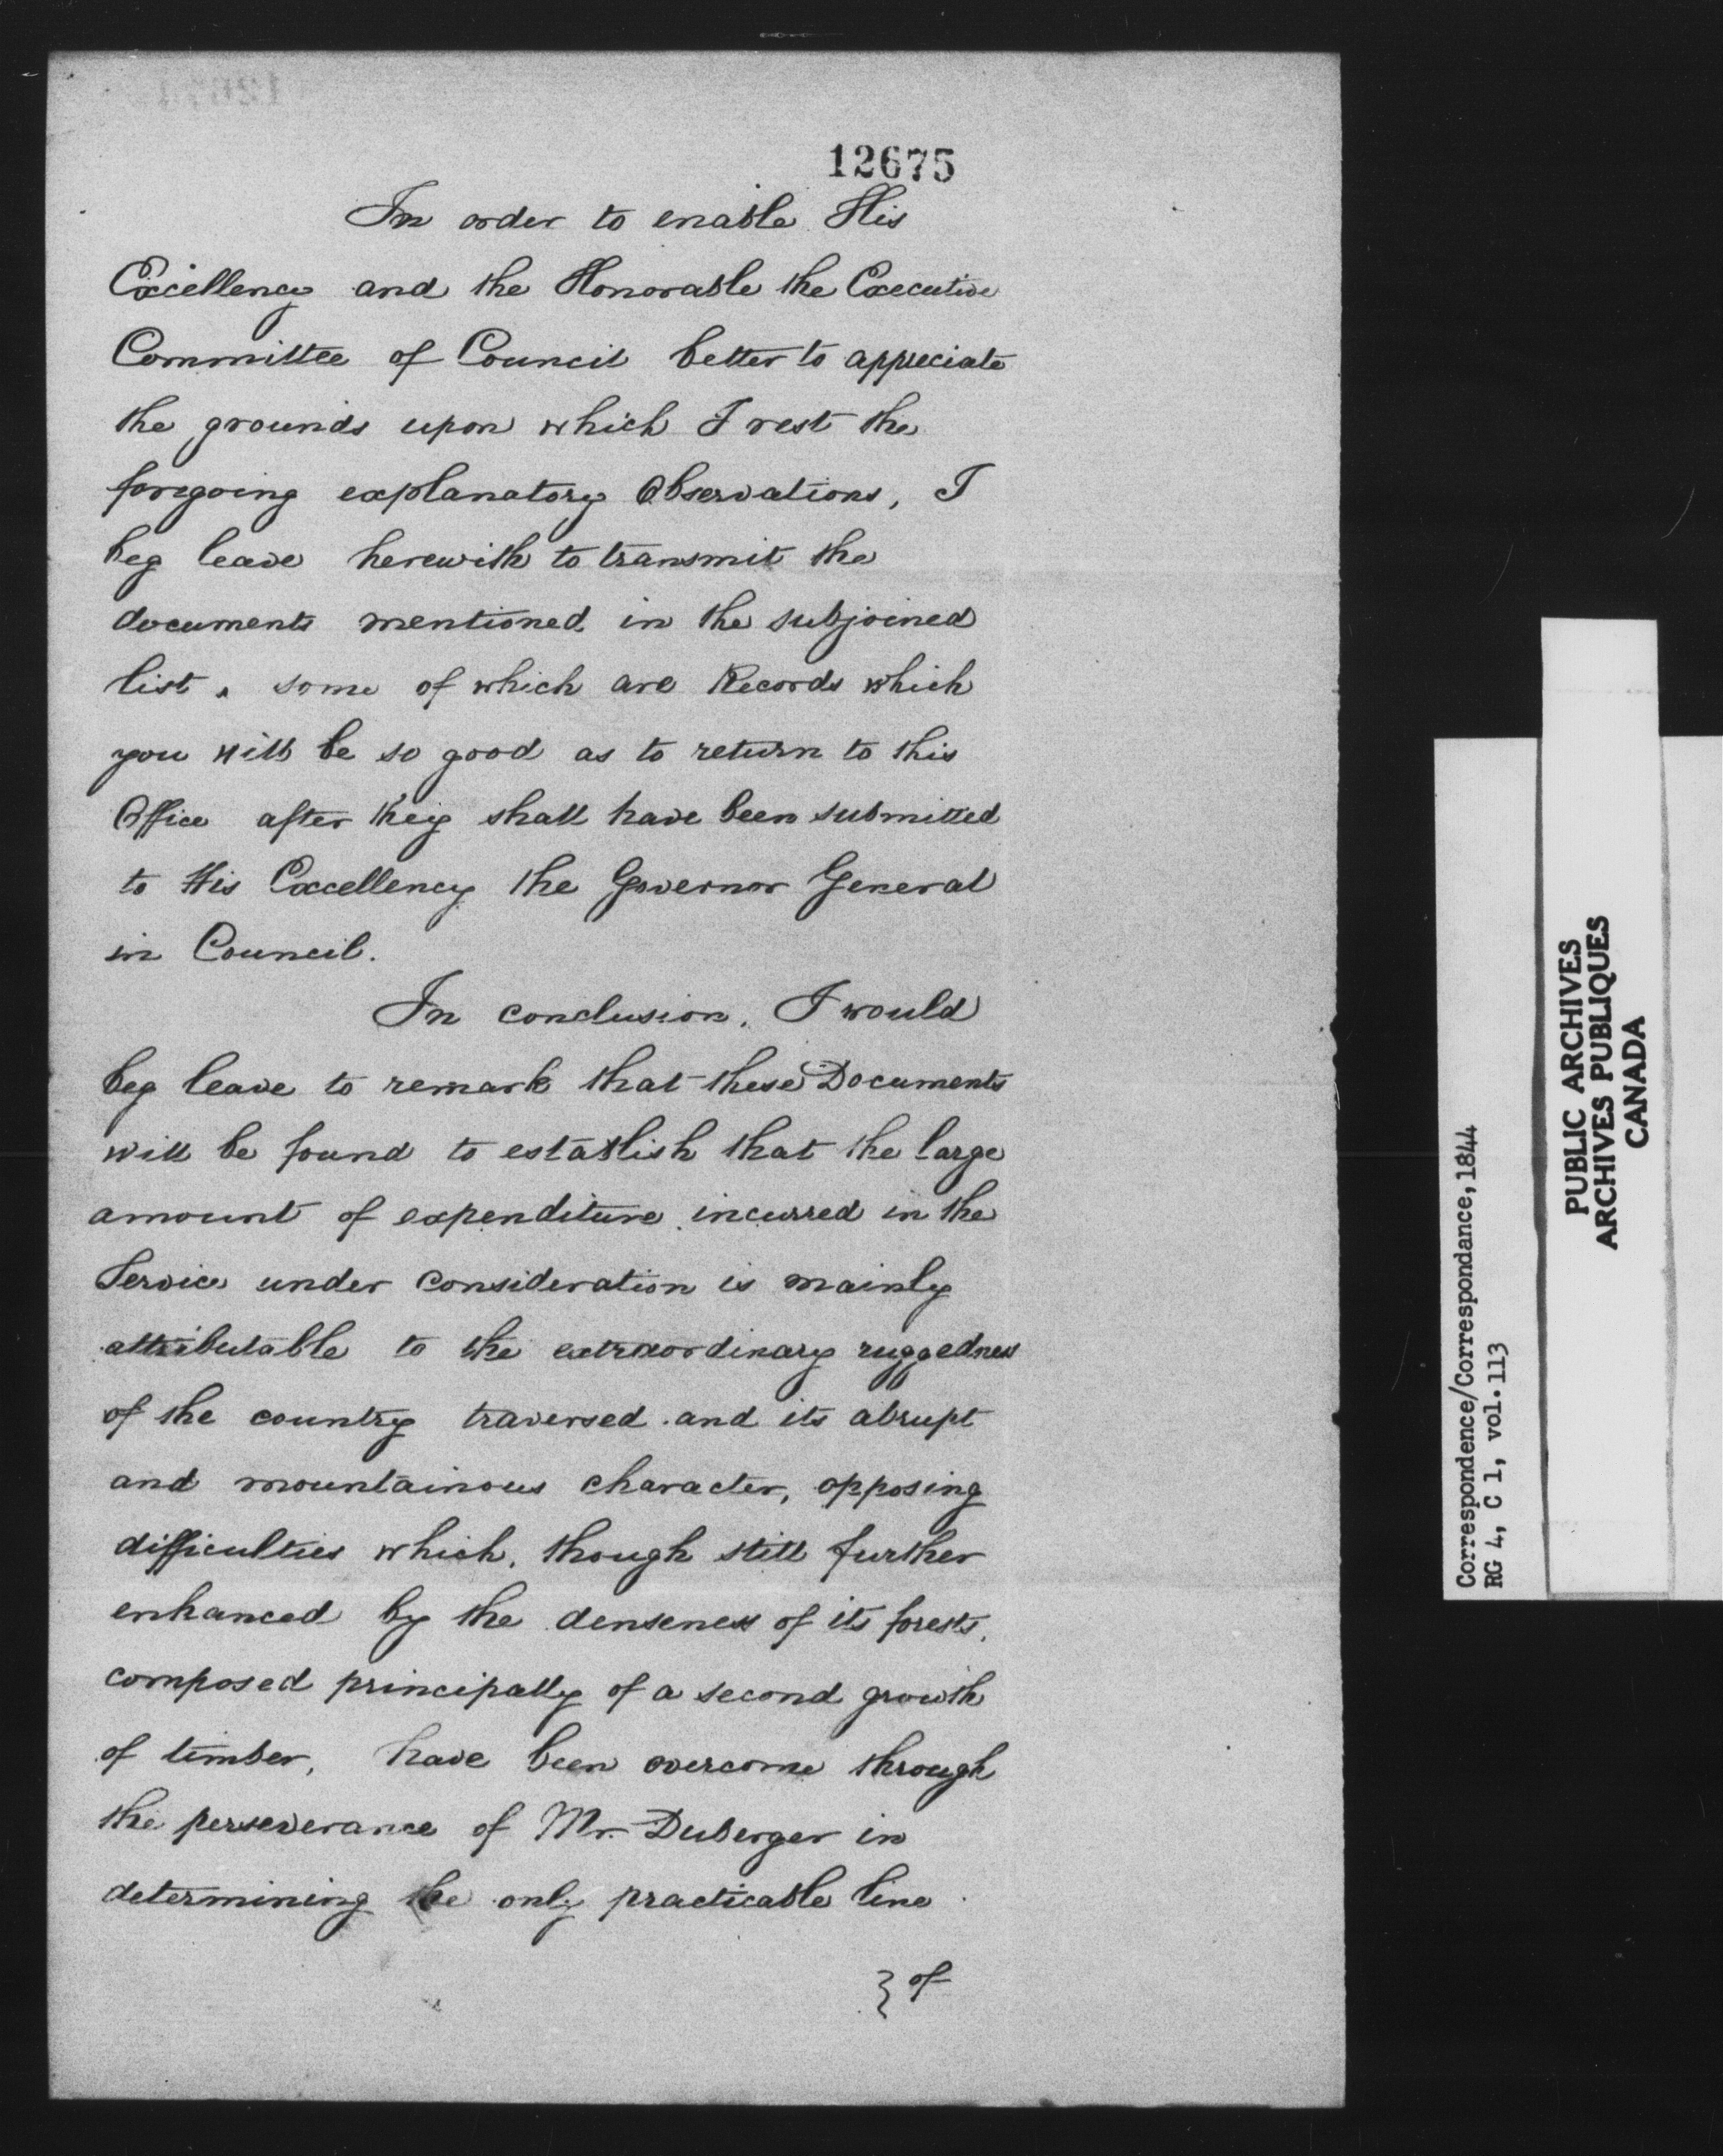 12675
In order to enable His
Excellency and the Honorable the Executive
Committee of Council better to appreciate
the grounds upon which I rest the
foregoing explanatory Observations, I
beg leave herewith to transmit the
documents mentioned in the subjoined
list, some of which are Records which
you will be so good as to return to this
Office after they shall have been submitted
to His Excellency the Governor General
in Council.
In conclusion, I would
beg leave to remark that these Documents
will be found to establish that the large
amount of expenditure incurred in the
Service under consideration is mainly
attributable to the extraordinary ruggedness
of the country traversed and its abrupt
and mountainous character, opposing
difficulties which, though still further
enhanced by the denseness of its forests,
composed principally of a second growth
of timber, have been overcome through
the perseverance of Mr. Duberger in
determining the only practicable line
} of
Correspondence/Correspondance, 1844
RG 4, C 1, vol. 113
PUBLIC ARCHIVES
ARCHIVES PUBLIQUES
CANADA